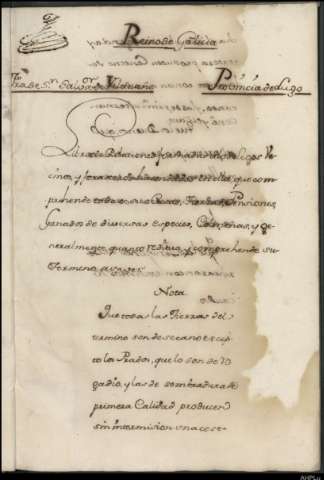 Reino de Galicia
Frã de Sn Salvr de Provincia de Lugo
Libro de de los Ve
cinos, y forasteros en ella que com
prehende todas sus Casas, Tierras, Pensiones,
Ganados de diversas especies, Colmenas, y ge
neralmente quanto reditua, y comprehende su
termino
Nota
Que todas las Tierras del
termino son de secano excep
to los Prados, que lo son de re
gadio, y las de sembradura de
primera Calidad producen
sin intermision una cose
AHPLu